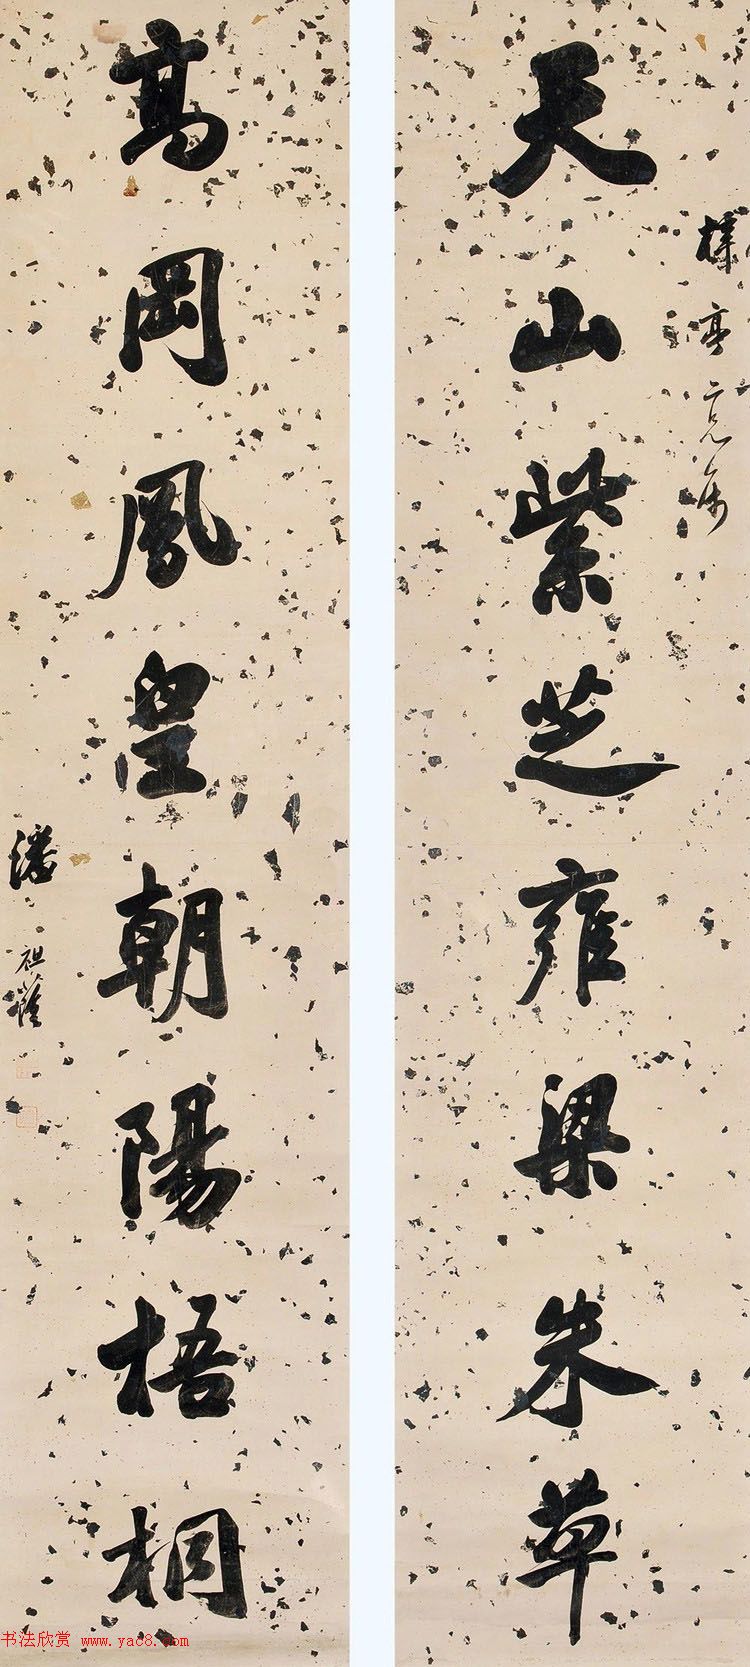 天山紫芝雍梁朱草
樟亭二兄属
高岡鳳皇朝陽梧桐
潘祖蔭
书法欣赏 www.yac8.com